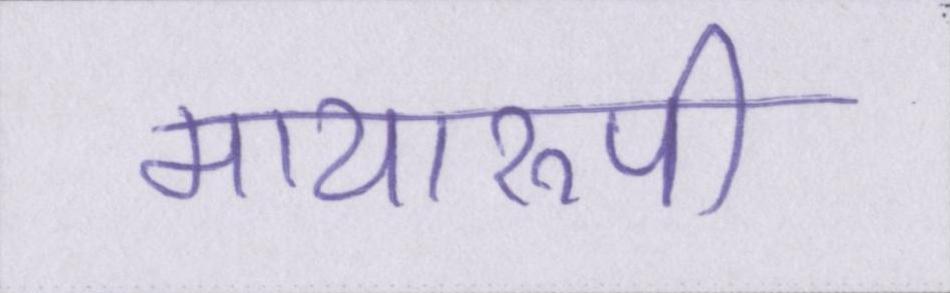 मायारूपी